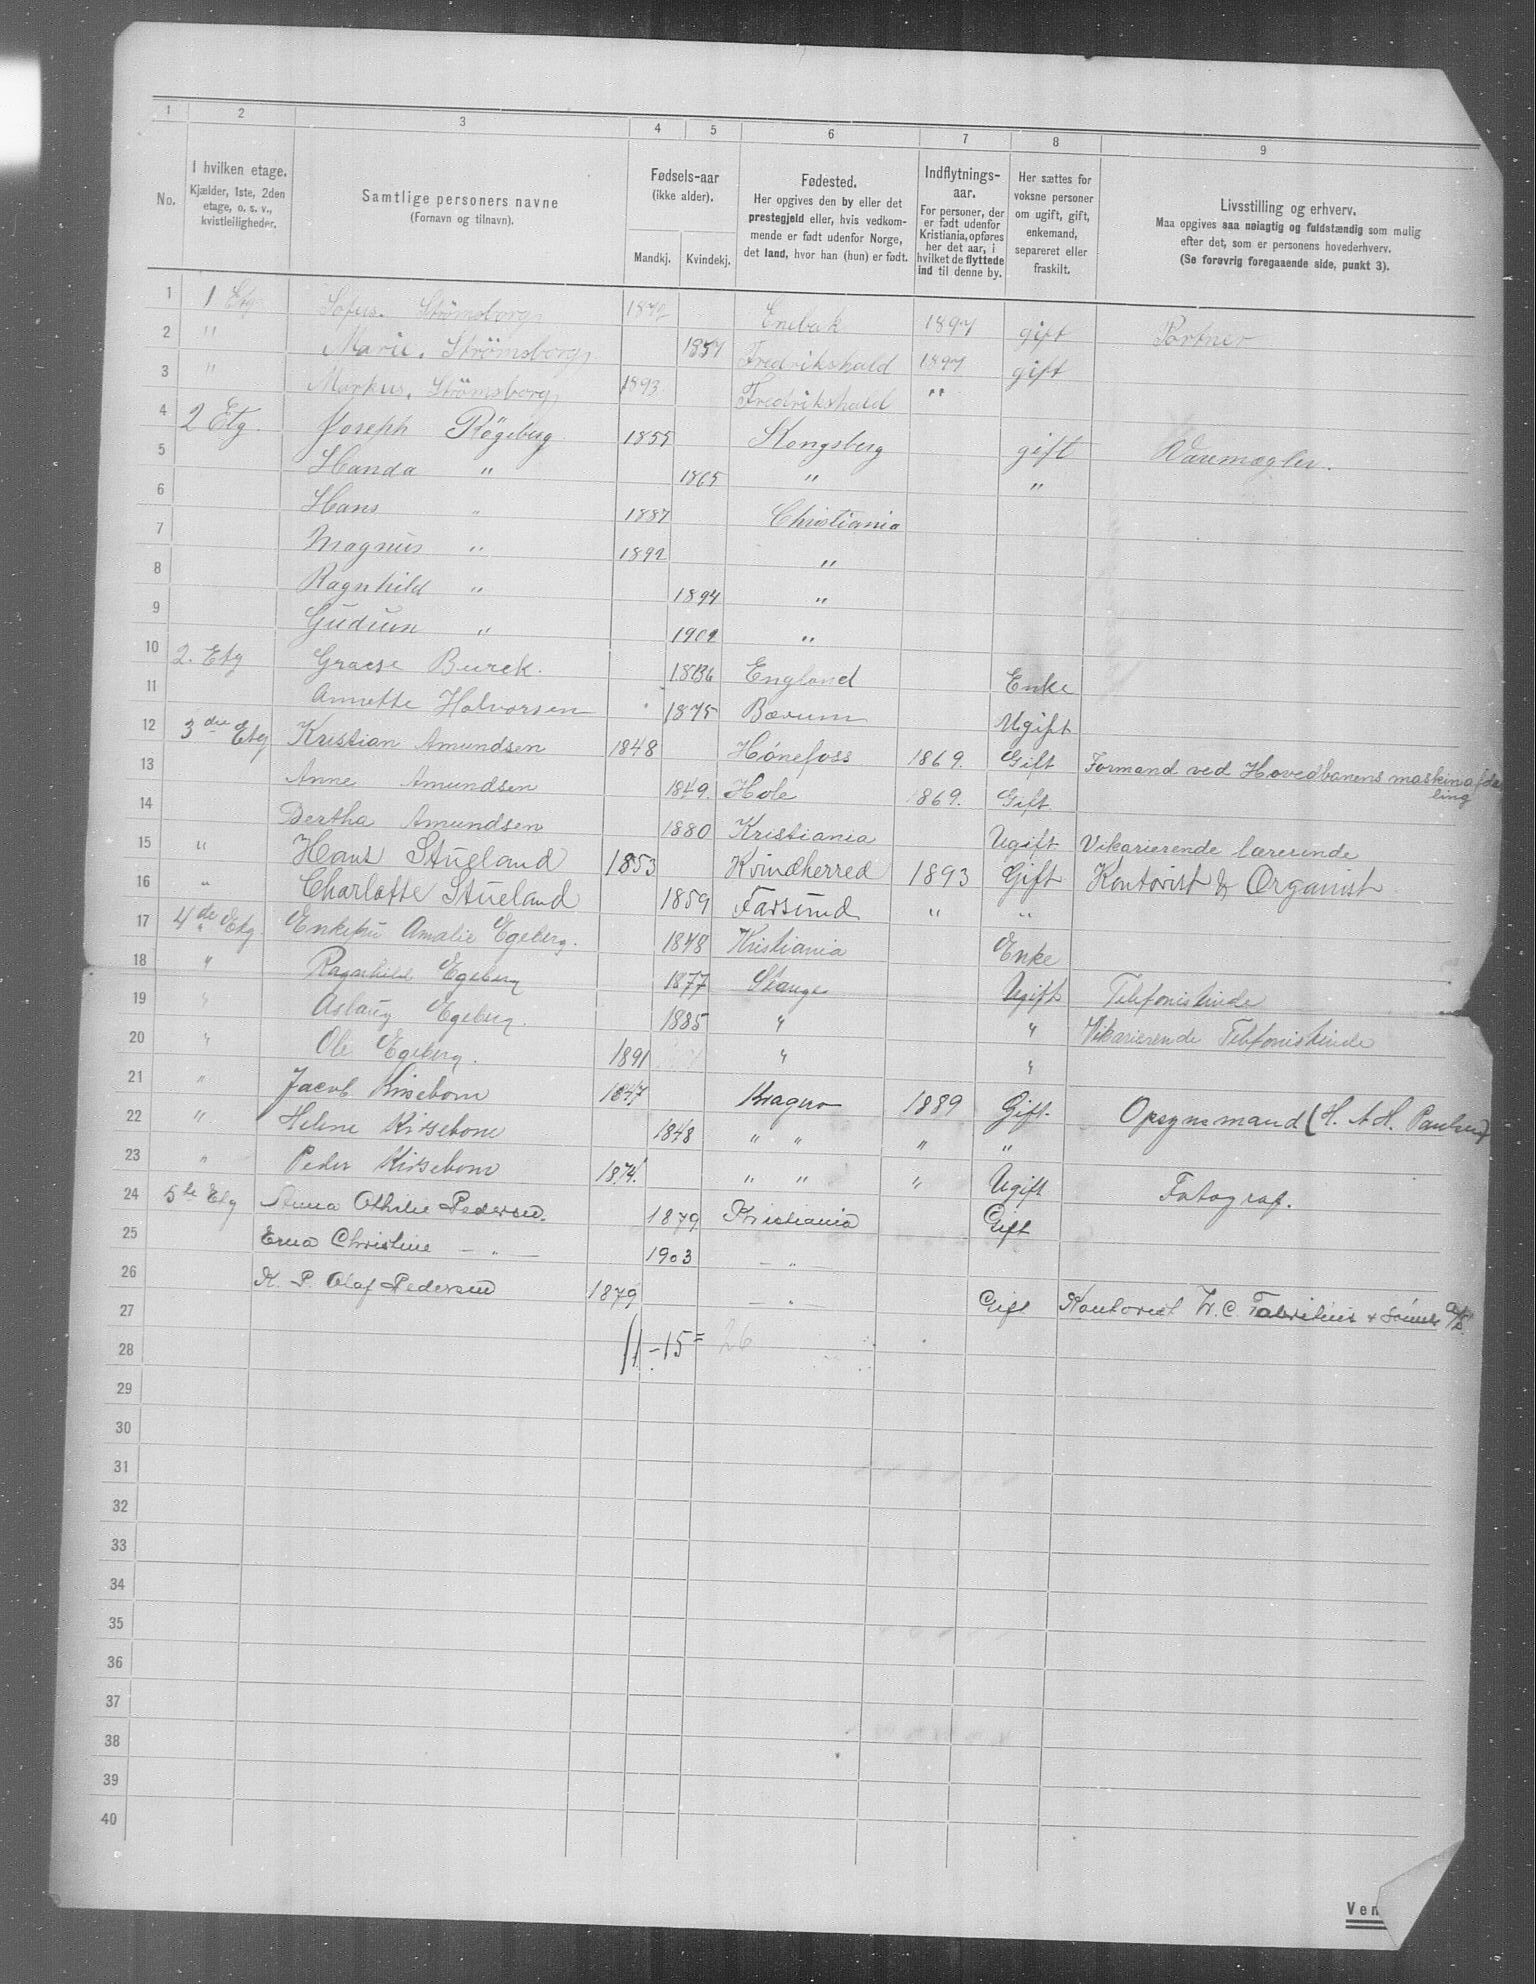 1 2 3 4 5 6 7 8 9
No.
I hvilken etage.
Kjælder, 1ste, 2den
etage, o. s. v.,
kvistleiligheder.
Samtlige personers navne
(Fornavn og tilnavn).
Fødsels-aar
(ikke alder).
Mandkj. Kvindekj.
Fødested.
Her opgives den by eller det
prestegjeld eller, hvis vedkom-
mende er født udenfor Norge,
det land, hvor han (hun) er født.
Indflytnings-
aar.
For personer, der
er født udenfor
Kristiania, opføres
her det aar, i
hvilket de flyttede
ind til denne by.
Her sættes for
voksne personer
om ugift, gift,
enkemand,
separeret eller
fraskilt.
Livsstilling og erhverv.
Maa opgives saa nøiagtig og fuldstændig som mulig
efter det, som er personens hovederhverv.
(Se forøvrig foregaaende side, punkt 3).
1 1 Etg Sofus. Strømsborg 1872 Enebak 1897 gift Portner
2 " Marie. Strømsborg 1857 Fredrikshald 1897 gift
3 " Markus. Strømsborg 1893 Fredrikshald "
4 2 Etg. Joseph Rögeberg 1855 Kongsberg gift Varemægler.
5 Handa " 1865 " "
6 Hans " 1887 Christiania
7 Magnus " 1892 "
8 Ragnhild " 1894 "
9 Gudrun " 1902 "
10 2. Etg Graese Burek. 1836 England Enke
11 Annette Halvorsen 1875 Bærum Ugift
12 3die Etg Kristian Amundsen 1848 Hönefoss 1869. Gift Formand ved Hovedbanens maskinafde
ling
13 Anne Amundsen 1849. Hole 1869. Gift
14 Bertha Amundsen 1880 Kristiania Ugift Vikarierende lærerinde
15 " Hans Stueland 1853 Kvindherred 1893 Gift Kontorist & Organist
16 " Charlotte Stueland 1859 Farsund " "
17 4de Etg Enkefru Amalie Egeberg. 1848 Kristiania Enke
18 " Ragnhild Egeberg 1877 Stange Ugift Telefonistinde
19 " Aslaug Egeberg. 1885 " " Vikarierende Telefonistinde
20 " Ole Egeberg. 1891 " "
21 " Jacob Kirsebom 1847 Kragerø 1889 Gift. Opsynsmand (H. A H. Paulsen)
22 " Helene Kirsebom 1848 " " " "
23 " Peder Kirsebom 1874. " " " Ugift Fotograf.
24 5te Etg Anna Othilie Pedersen. 1879 Kristiania Gift
25 Erna Christine — " — 1903 — " —
26 K. P. Olaf Pedersen 1879 — " Gift Kontorist W. C. Fabritius & Sönner A/S.
27
28 11 - 15 = 26
29
30
31
32
33
34
35
36
37
38
39
40
Ven